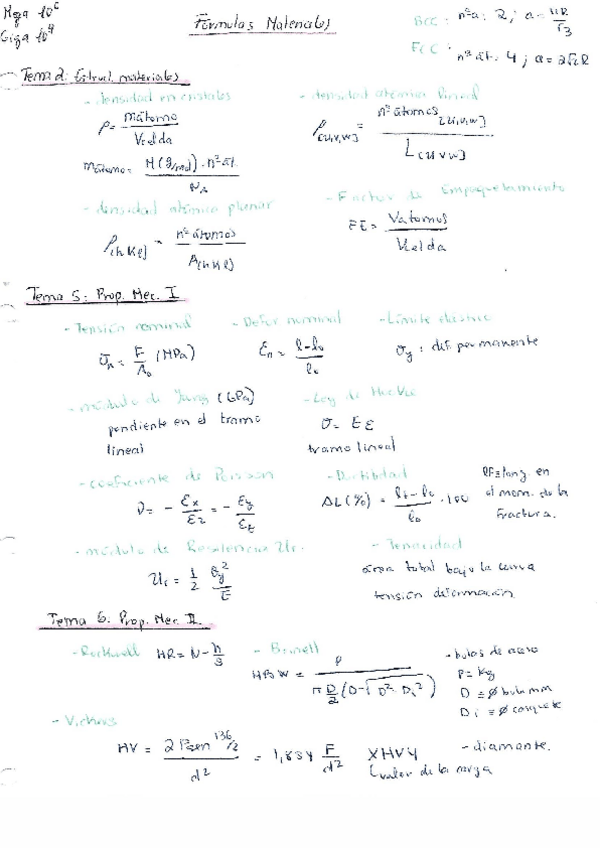 Mega 10⁶
Giga 10⁹
Fórmulas Materiales
BCC: nºat: 2; a = 4R/√3
FCC: nº át. 4; a = 2√2R
Tema 2: Estruct. materiales
- densidad en cristales
ρ = mátomo / Vcelda
mátomo = M (g/mol) · nº át. / NA
- densidad atómica lineal
ρ[u,v,w] = nº átomos[u,v,w] / L[u v w]
- densidad atómica planar
ρ(h k l) = nº átomos / A(h k l)
- Factor de Empaquetamiento
FE = Vátomos / Vcelda
Tema 5: Prop. Mec. I
- Tensión nominal
σn = F/A₀ (MPa)
- Defor nominal
εn = l-l₀ / l₀
- Límite elástico
σy: def. permanente
- módulo de Young (GPa)
pendiente en el tramo
lineal
- Ley de Hooke
σ = Eε
tramo lineal
- coeficiente de Poisson
ν = - εx/εz = - εy/εz
- Ductilidad
ΔL(%) = lf-l₀ / l₀ · 100
lf = long. en
el mom. de la
fractura.
- módulo de Resiliencia Ur.
Ur = 1/2 σy²/E
- Tenacidad
área total bajo la curva
tensión deformación
Tema 6. Prop. Mec II.
- Rockwell HR = N - h/s
- Brinell
HBW = P / π D/2 (D-√D²-Di²)
- bolas de acero
P = Kg
D = Ø bola mm
Di = Ø casquete
- Vickers
HV = 2 P sen 136/2 / d² = 1,854 F/d² XHVY
valor de la carga
- diamante.